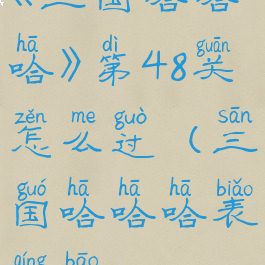 《三国哈哈
hā dì guān
哈》第48关
zěn me guò sān
怎么过(三
guó hā hā hā biǎo
国哈哈哈表
qíng bāo